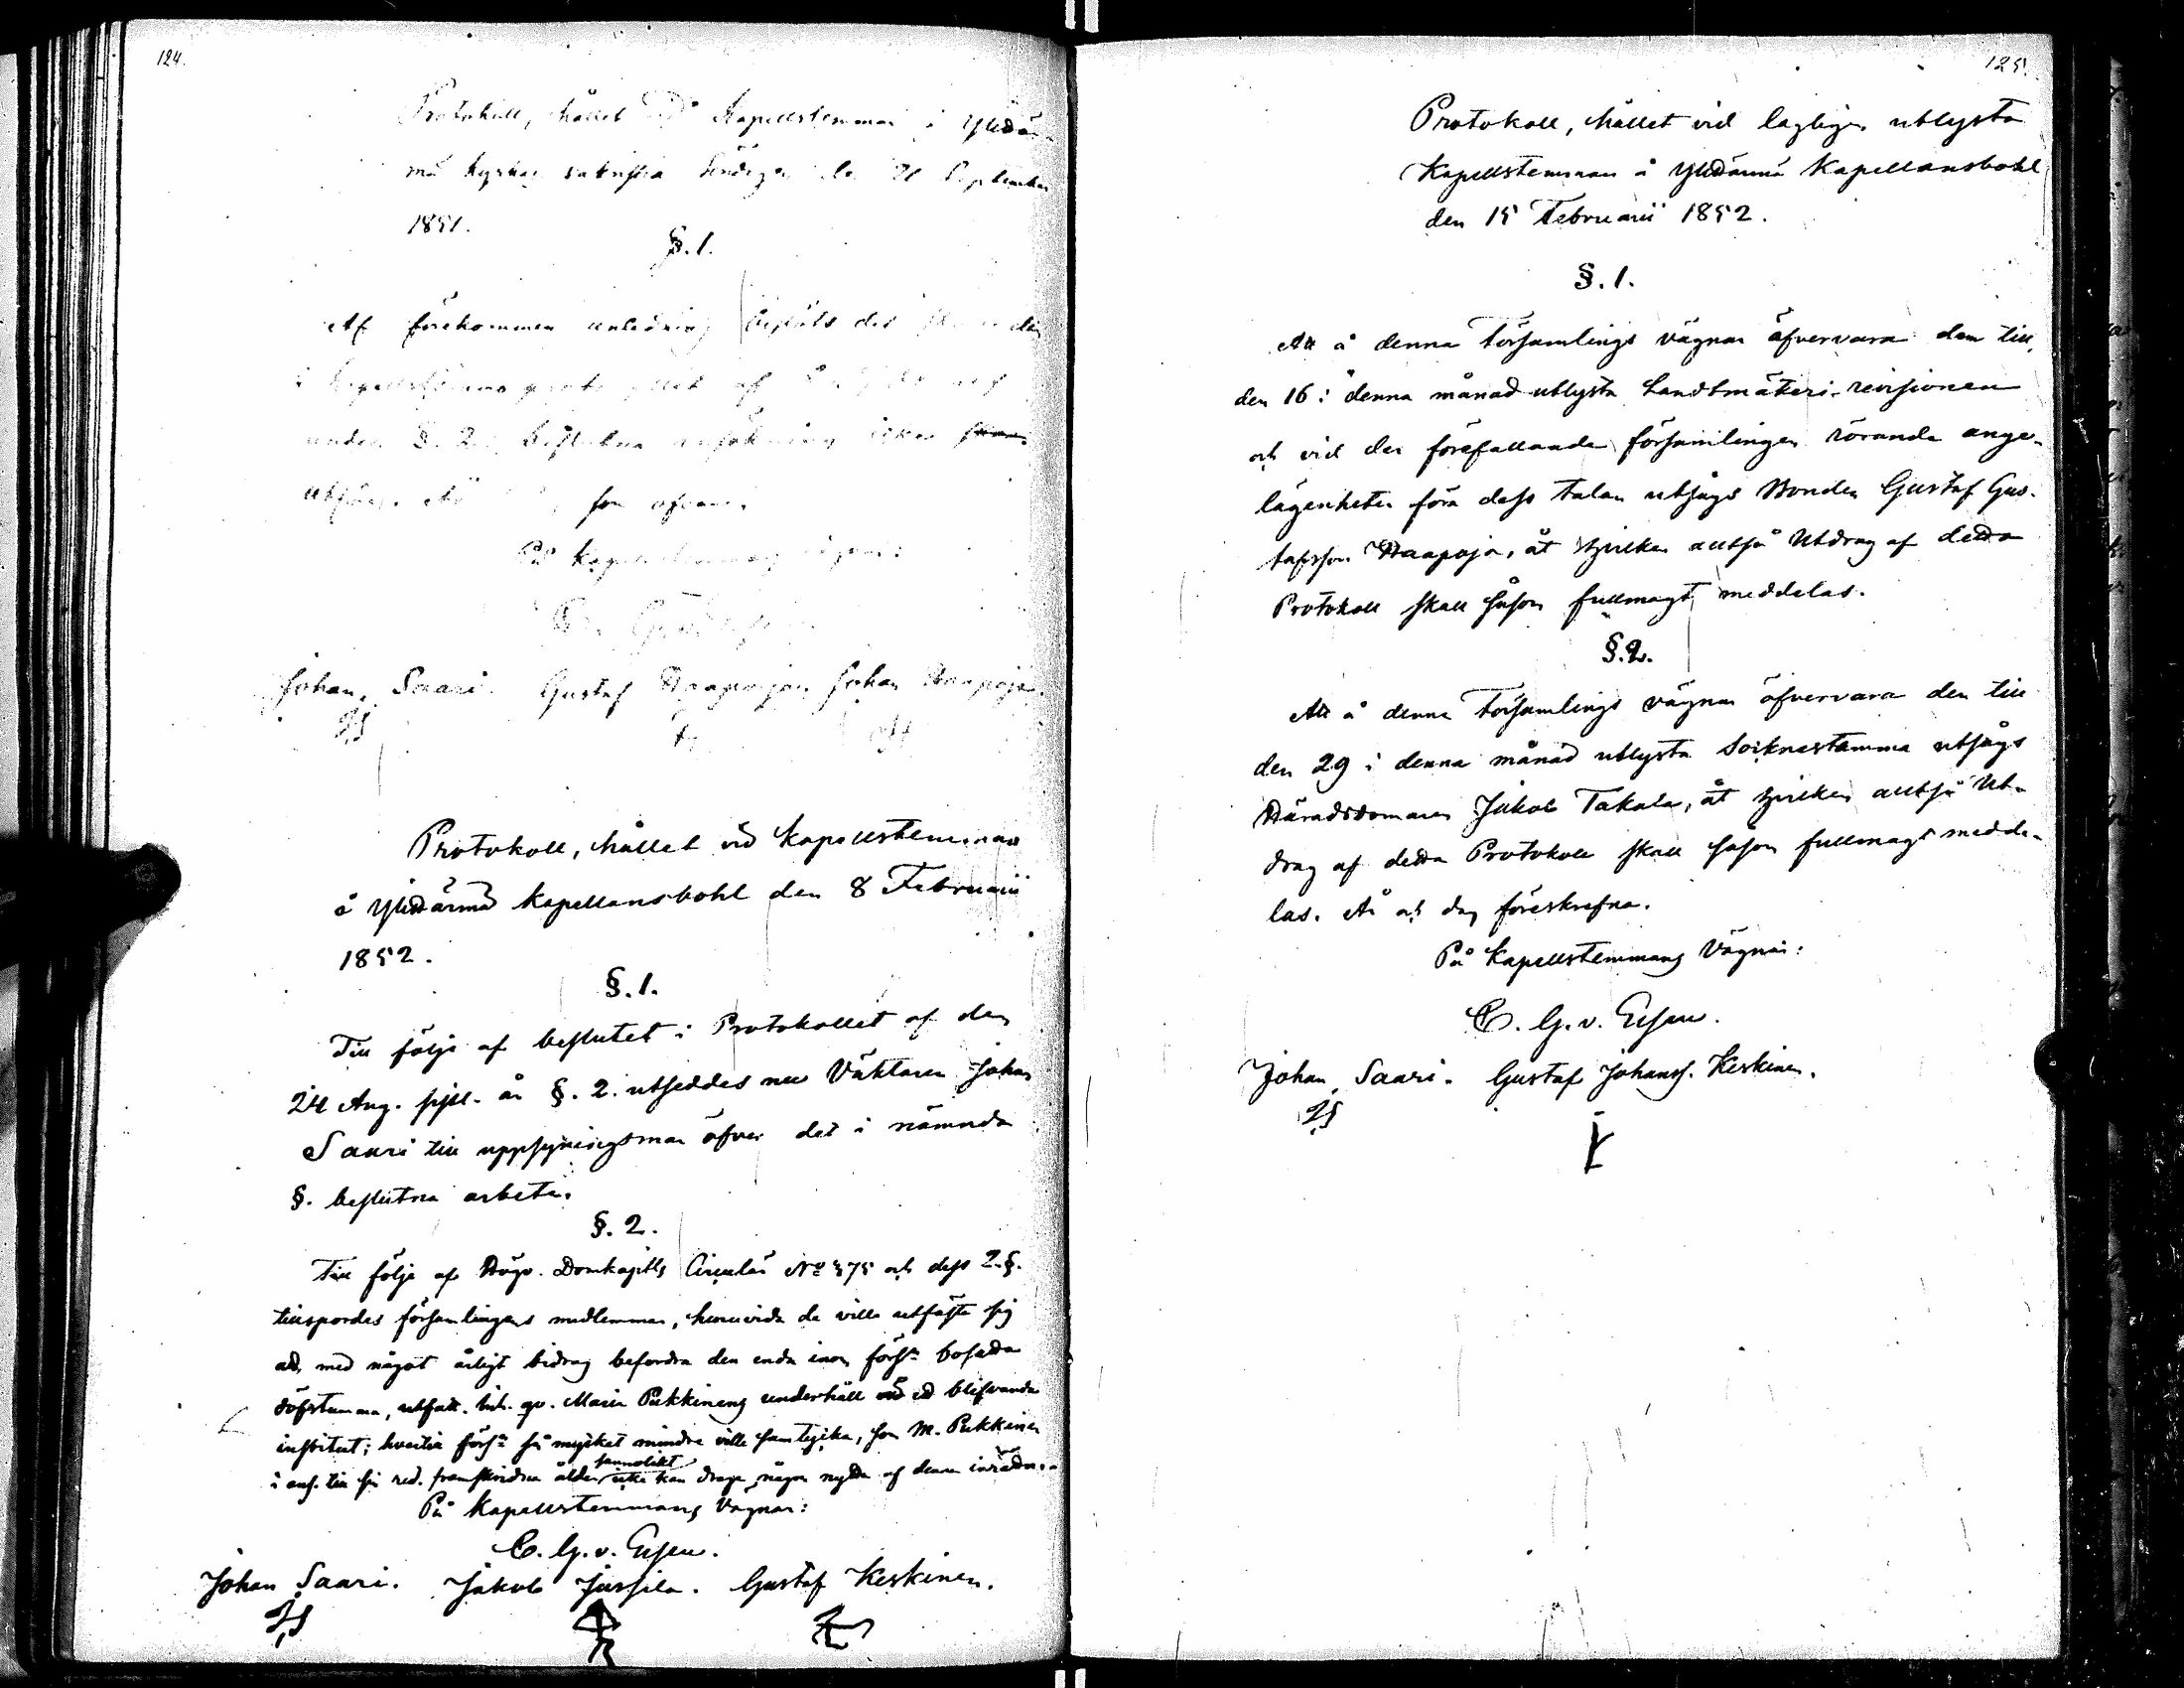 124.
Protokoll, hållet vid Kapellstemman i Ylihär-
mä kyrkas sakristia Söndagen den 21 September
1851.
§. 1.
Af förekommen anledning besluts det
i kapellstämmo af
under §. 2. beslutna ansökning icke
utföras. År som ofvan.
På Kapellstemmans vägnar:
Johan Saari. Gustaf Haapoja. Johan Haapoja.
Protokoll, hållet vid Kapellstemman
å Ylihärmä Kapellansbohl den 8 Februarii
1852.
§. 1.
Till följe af beslutet i Protokollet af den
24 Aug. sistl. år §. 2. utseddes nu Väktaren Johan
Saari till uppsyningsman öfver det i nämnda
§. beslutna arbete.
§. 2.
Till följe af Högv. Domkapitls Circulär No 375 och dess 2. §.
tillspordes församlingens medlemmar, huruvida de ville utfästa sig
att med något årligt bidrag befordra den enda inom förs:n bosatta
döfstumma, utfatt. inh. qv. Maria Pukkinens underhåll vid ett blifvande
institut; hvartill förs:n så mycket mindre ville samtycka, som M. Pukkinen
i ans. till sin red. framskridna ålder sannolikt icke kan draga någon nytta af denna inrättn.
På Kapellstemmans Vägnar:
C. G. v. Essen.
Johan Saari. Jakob Jussila. Gustaf Keskinen.
125.
Protokoll, hållet vid lagligen utlysta
Kapellstemman å Ylihärmä Kapellansbohl
den 15 Februarii 1852.
§. 1.
Att å denna Församlings vägnar öfvervara den till
den 16 i denna månad utlysta Landtmäteri-revisionen
och vid der förefallande församlingen rörande ange-
lägenheter föra dess talan utsågs Bonden Gustaf Gus-
tafsson Haapoja, åt hvilken alltså Utdrag af detta
Protokoll skall såsom fullmagt meddelas.
§. 2.
Att å denna Församlings vägnar öfvervara den till
den 29 i denna månad utlysta Socknestämma utsågs
Häradsdomaren Jakob Takala, åt hvilken alltså Ut-
drag af detta Protokoll skall såsom fullmagt medde-
las. År och dag föreskrefna.
På Kapellstemmans Vägnar:
C. G. v. Essen.
Johan Saari. Gustaf Johanss. Keskinen.